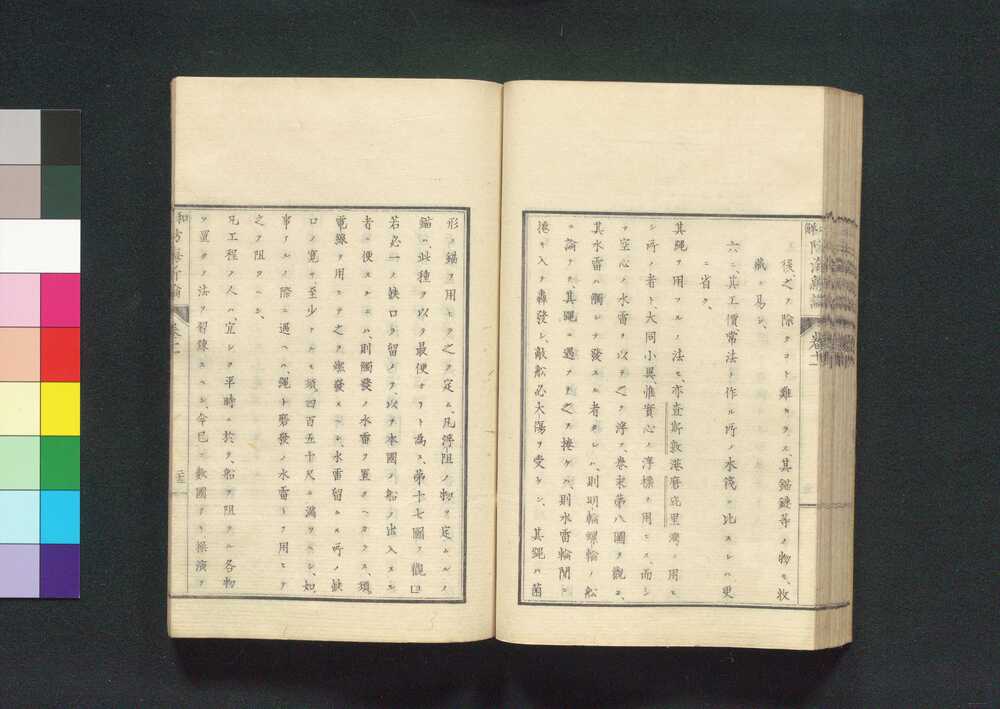 後之ヲ除クコト難カラス、其錨鏈等ノ物モ、收
藏シ易シ、
六ニ、其工價常法ト作ル所ノ木筏ニ比スレハ更
ニ省ク、
其繩ヲ用フルノ法モ、亦查斯敦港磨庇里灣ニ用ヒ
シ所ノ者ト大同小異、惟實心ノ浮標ヲ用ヒス、而シ
ヲ空心ノ水雷ヲ以テ之ヲ浮フ、卷末第八圖ヲ觀ヨ、
其水雷ハ觸レテ發スル者タレハ、則明輪螺輪ノ船
ヲ論ナク、其繩ニ遇フテ之ヲ捲ケハ、則水雷輪間ニ
捲キ入リ轟發シ、敵船必大傷ヲ受ケン、其繩ハ菌
形ノ錨ヲ用ヒテ之ヲ定ム、凡浮阻ノ物ヲ定ムルノ
錨ハ、此種ヲ以テ最便ナリト為ス、第十七圖ヲ觀ヨ
若必一ノ缺口ヲ留メテ、以テ本國ノ船ノ出入スル
者ニ便スルニハ、則觸發ノ水雷ヲ置クヘカラス、須
電線ヲ用ヒテ之ヲ燃發スヘシ、水雷留ムル所ノ缺
口ノ寬サ、至少ナルモ須四百五十尺ニ滿ツヘシ、如
事アルノ際ニ遇ハヽ、繩ト磨發ノ水雷トヲ用ヒテ
之ヲ阻ツヘシ、
凡工程ノ人ハ、宜シク平時ニ於テ、船ヲ阻ツル各物
ヲ置クノ法ヲ習鍊スヘシ、今已ニ數國アリ操演ヲ
防海新論 卷十二